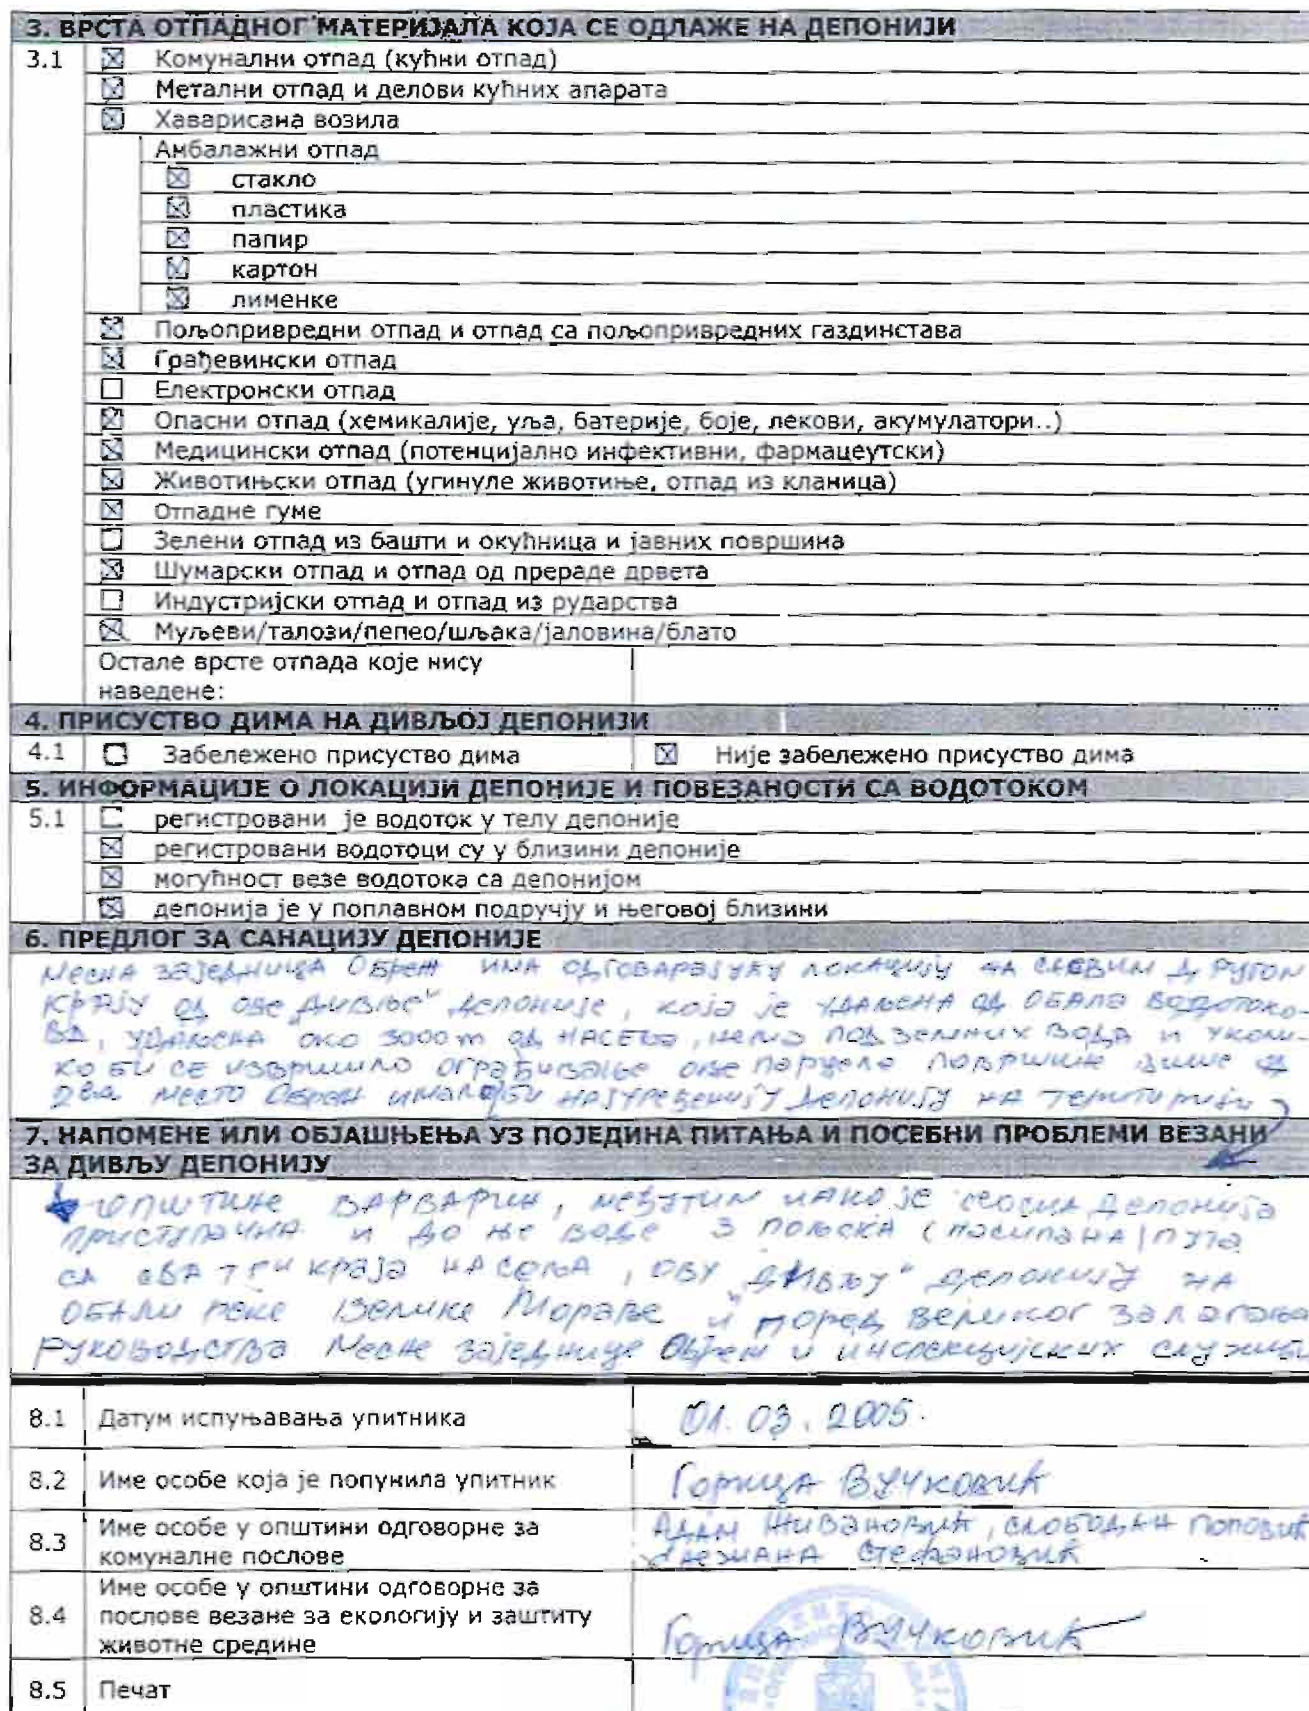 3. ВРСТА ОТПАДНОГ МАТЕРИЈАЛА КОЈА СЕ ОДЛАЖЕ НА ДЕПОНИЈИ
3.1 ☒ Комунални отпад (кућни отпад)
☒ Метални отпад и делови кућних апарата
☒ Хаварисана возила
Амбалажни отпад
☒ стакло
☒ пластика
☒ папир
☒ картон
☒ лименке
☒ Пољопривредни отпад и отпад са пољопривредних газдинстава
☒ Грађевински отпад
☐ Електронски отпад
☒ Опасни отпад (хемикалије, уља, батерије, боје, лекови, акумулатори..)
☒ Медицински отпад (потенцијално инфективни, фармацеутски)
☒ Животињски отпад (угинуле животиње, отпад из кланица)
☒ Отпадне гуме
☐ Зелени отпад из башти и окућница и јавних површина
☒ Шумарски отпад и отпад од прераде дрвета
☐ Индустријски отпад и отпад из рударства
☒ Муљеви/талози/пепео/шљака/јаловина/блато
Остале врсте отпада које нису
наведене:
4. ПРИСУСТВО ДИМА НА ДИВЉОЈ ДЕПОНИЈИ
4.1 ☐ Забележено присуство дима ☒ Није забележено присуство дима
5. ИНФОРМАЦИЈЕ О ЛОКАЦИЈИ ДЕПОНИЈЕ И ПОВЕЗАНОСТИ СА ВОДОТОКОМ
5.1 ☐ регистровани је водоток у телу депоније
☒ регистровани водотоци су у близини депоније
☒ могућност везе водотока са депонијом
☒ депонија је у поплавном подручју и његовој близини
6. ПРЕДЛОГ ЗА САНАЦИЈУ ДЕПОНИЈЕ
Месна заједница Обреж има одговарајућу локацију на сасвим другом
крају од ове „дивље" депоније, која је удаљена од обала водотоко-
ва, удаљена око 3000 m од насеља, нема подземних вода и уколи-
ко би се извршило ограђивање ове парцеле површине више од
2ha место Обреж имало би најуређенију депонију на територији
7. НАПОМЕНЕ ИЛИ ОБЈАШЊЕЊА УЗ ПОЈЕДИНА ПИТАЊА И ПОСЕБНИ ПРОБЛЕМИ ВЕЗАНИ
ЗА ДИВЉУ ДЕПОНИЈУ
општине Варварин, међутим иако је сеоска депонија
приступачна и до ње воде 3 пољска (посипана) пута
са сва три краја насеља, ову „дивљу" депонију на
обали реке Велике Мораве и поред великог залагања
руководства Месне заједнице Обреж и инспекцијских служби
8.1 Датум испуњавања упитника 01.03.2005.
8.2 Име особе која је попунила упитник Горица Вучковић
8.3 Име особе у општини одговорне за
комуналне послове Живановић, Слободан Поповић
Стефановић
8.4 Име особе у општини одговорне за
послове везане за екологију и заштиту
животне средине Горица Вучковић
8.5 Печат